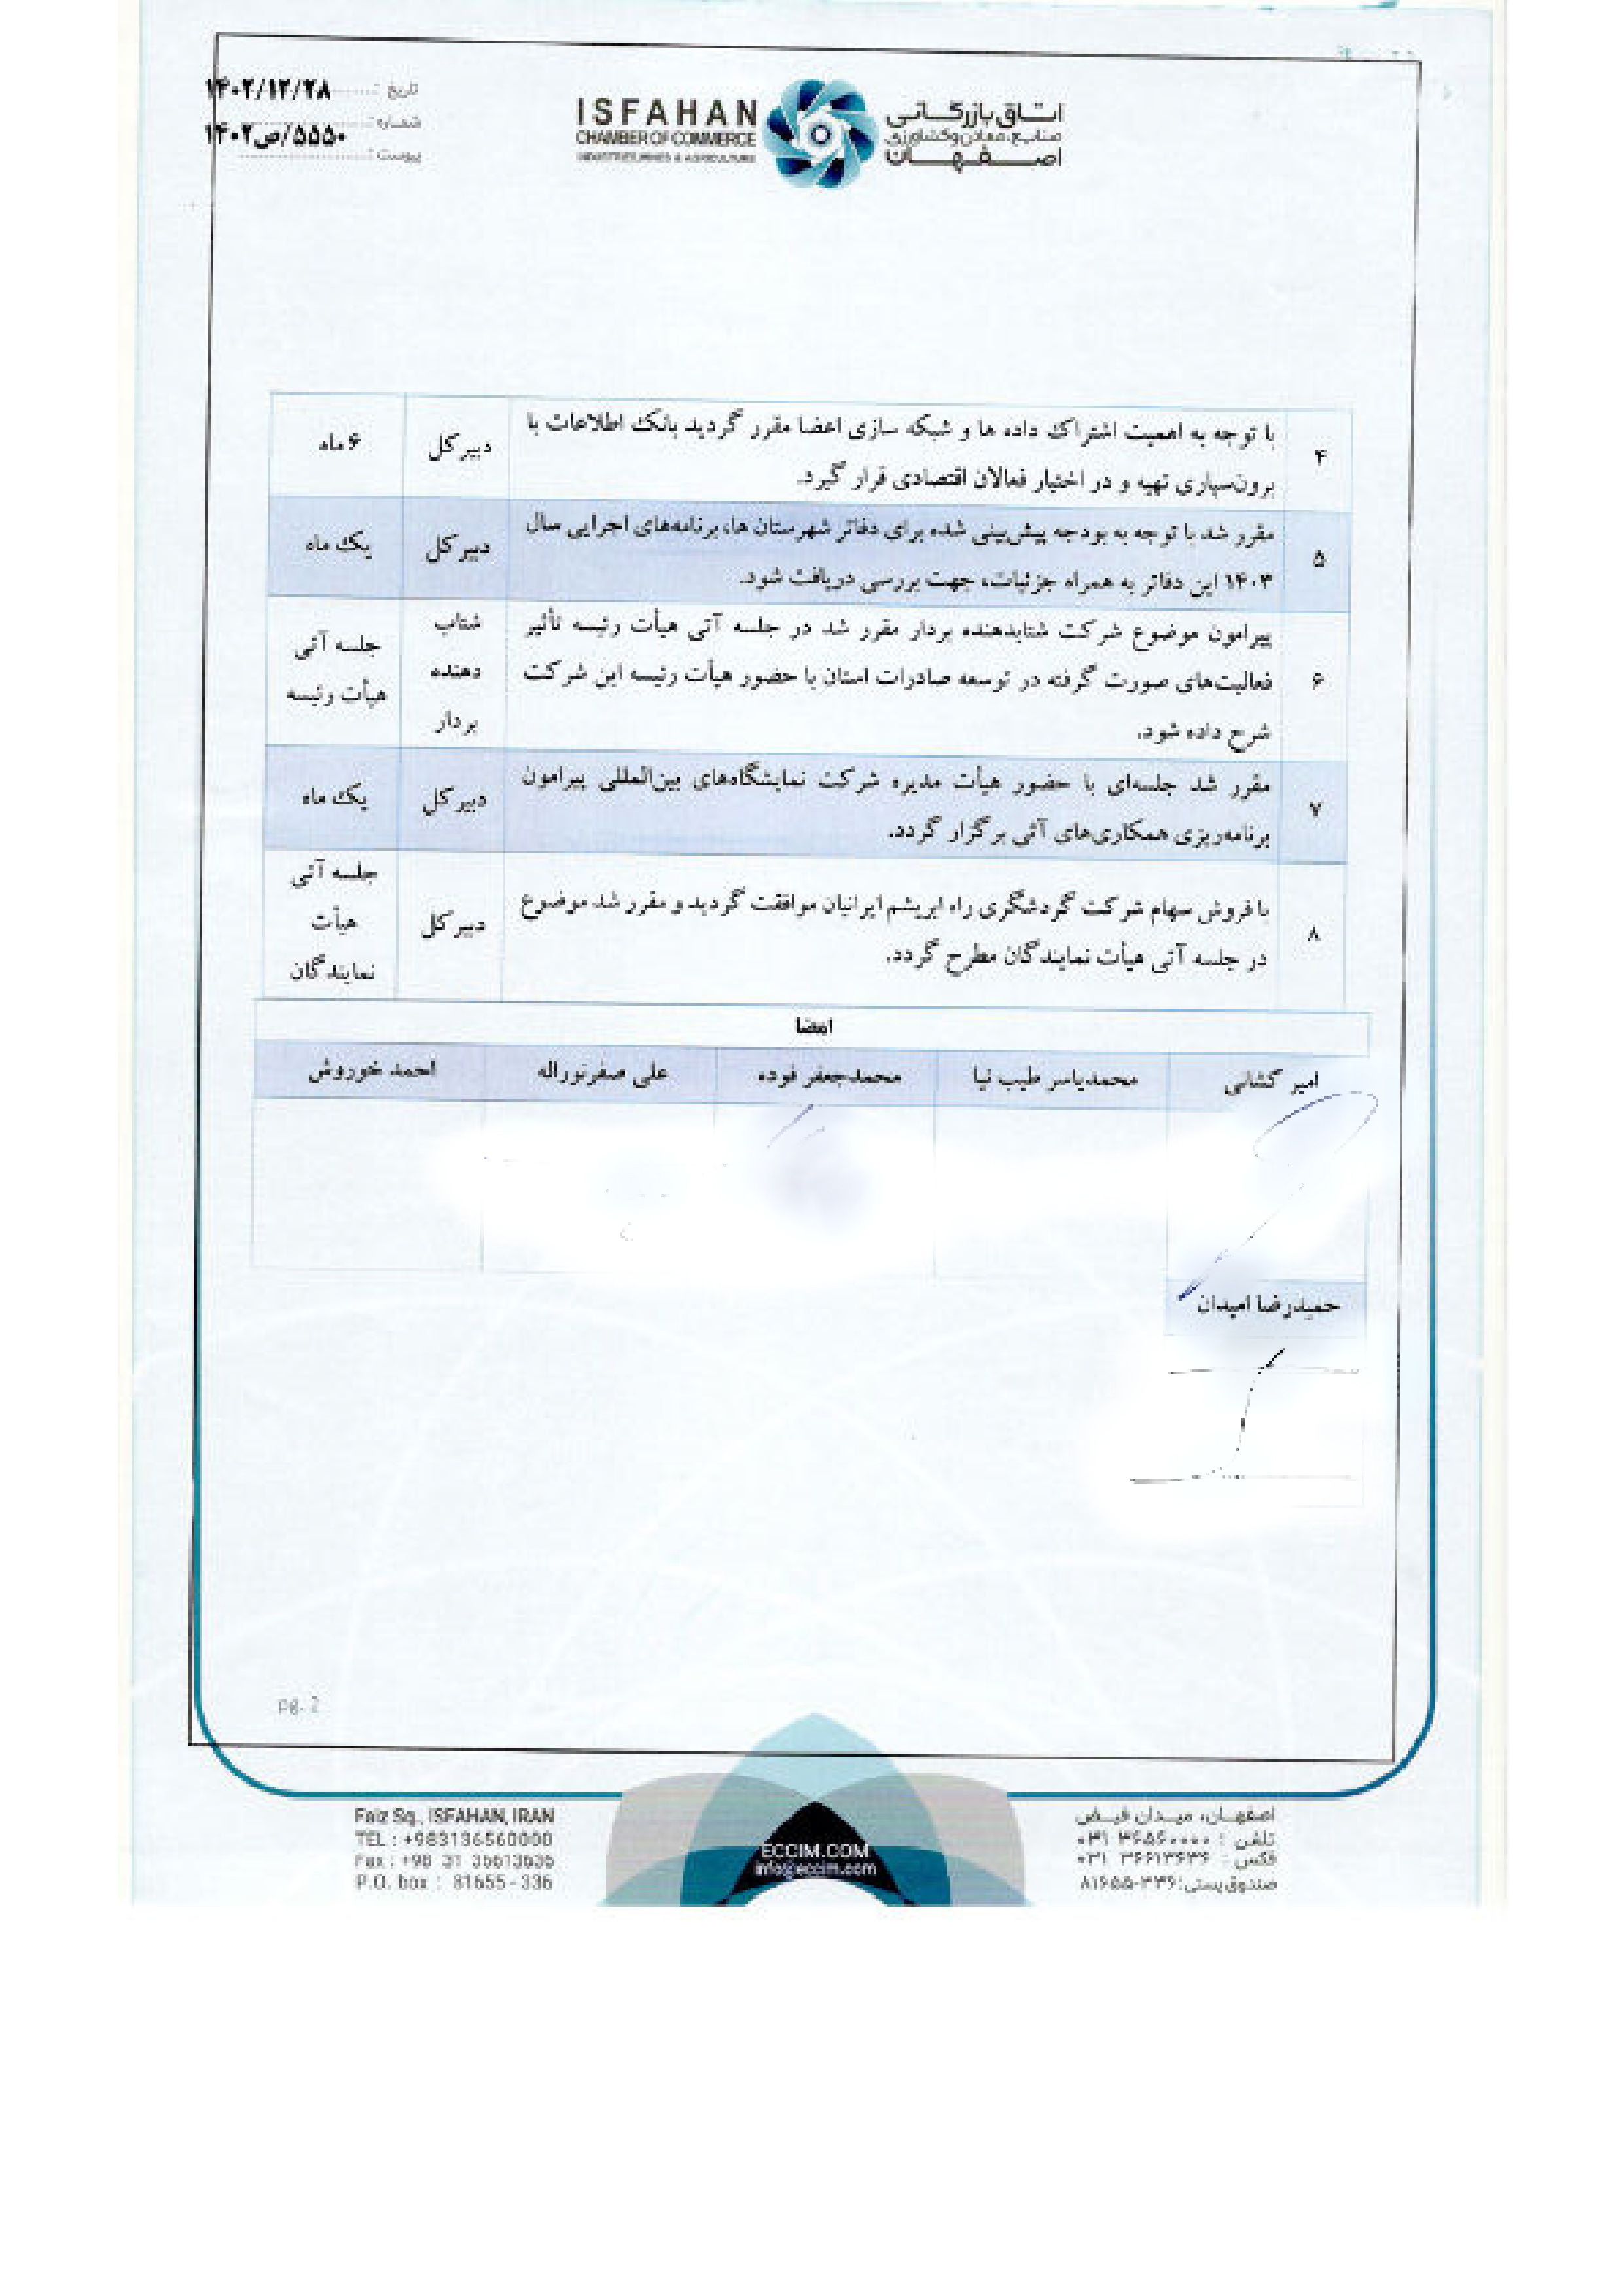 تاریخ : ۱۴۰۲/۱۲/۲۸
شماره: ۵۵۵۰/ص۱۴۰۲
پیوست:
ISFAHAN
CHAMBER OF COMMERCE
INDUSTRIES, MINES & AGRICULTURE
اتاق بازرگانی
صنایع، معادن و کشاورزی
اصفهان
۴
با توجه به اهمیت اشتراک داده ها و شبکه سازی اعضا مقرر گردید بانک اطلاعات با
برون‌سپاری تهیه و در اختیار فعالان اقتصادی قرار گیرد.
دبیر کل
۶ ماه
۵
مقرر شد با توجه به بودجه پیش‌بینی شده برای دفاتر شهرستان ها، برنامه‌های اجرایی سال
۱۴۰۳ این دفاتر به همراه جزئیات، جهت بررسی دریافت شود.
دبیر کل
یک ماه
۶
پیرامون موضوع شرکت شتابدهنده بردار مقرر شد در جلسه آتی هیأت رئیسه تأثیر
فعالیت‌های صورت گرفته در توسعه صادرات استان با حضور هیأت رئیسه این شرکت
شرح داده شود.
شتاب
دهنده
بردار
جلسه آتی
هیأت رئیسه
۷
مقرر شد جلسه‌ای با حضور هیأت مدیره شرکت نمایشگاه‌های بین‌المللی پیرامون
برنامه‌ریزی همکاری‌های آتی برگزار گردد.
دبیر کل
یک ماه
۸
با فروش سهام شرکت گردشگری راه ابریشم ایرانیان موافقت گردید و مقرر شد موضوع
در جلسه آتی هیأت نمایندگان مطرح گردد.
دبیر کل
جلسه آتی
هیأت
نمایندگان
امضا
امیر کشانی
محمدیاسر طیب نیا
محمدجعفر فوده
علی صفرنوراله
احمد خوروش
حمیدرضا امیدان
pg. 2
Faiz Sq., ISFAHAN, IRAN
TEL : +983136560000
Fax : +98 31 36613636
P.O. box : 81655 - 336
ECCIM.COM
info@eccim.com
اصفهان، میدان فیض
تلفن : ۰۳۱ ۳۶۵۶۰۰۰۰
فکس : ۰۳۱ ۳۶۶۱۳۶۳۶
صندوق پستی: ۸۱۶۵۵-۳۳۶